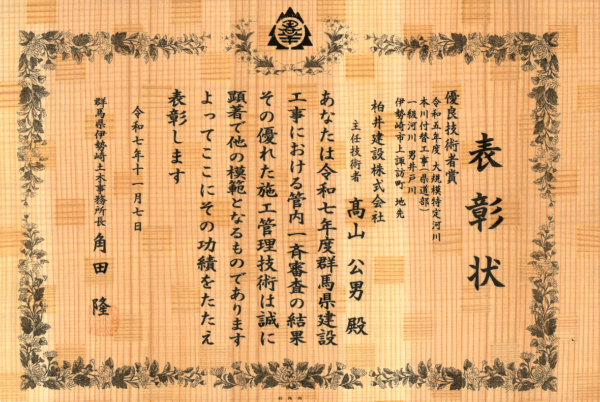 表彰状
優良技術者賞
令和五年度 大規模特定河川
本川付替工事(県道部)
一級河川 男井戸川
伊勢崎市上諏訪町 地先
柏井建設株式会社
主任技術者 髙山 公男 殿
あなたは令和七年度群馬県建設
工事における管内一斉審査の結果
その優れた施工管理技術は誠に
顕著で他の模範となるものであります
よってここにその功績をたたえ
表彰します
令和七年十一月七日
群馬県伊勢崎土木事務所長 角田 隆